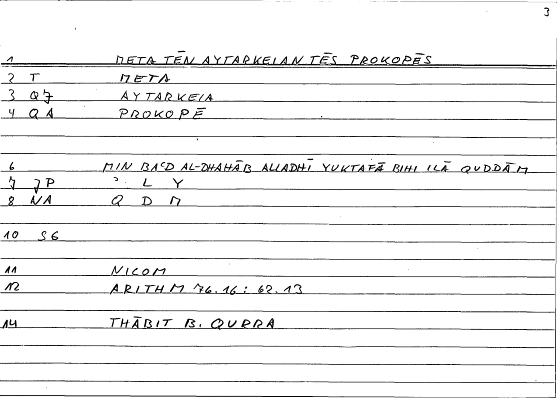 3
1 META TĒN AYTARKEIAN TĒS PROKOPĒS
2 T META
3 QJ AYTARKEIA
4 QA PROKOPĒ
6 MIN BAʿD AL-DHAHĀB ALLADHĪ YUKTAFĀ BIHI ILĀ QUDDĀM
7 JP ʾ L Y
8 NA Q D M
10 S6
11 NICOM
12 ARITHM 76.16 : 62.13
14 THĀBIT B. QURRA